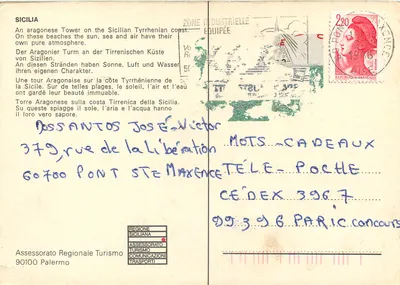 SICILIA
An aragonese Tower on the Sicilian Tyrrhenian coast.
On these beaches the sun, sea and air have their own pure atmosphere.
Der Aragonier Turm an der Tirrenischen Küste von Sizilien.
An diesen Stränden haben Sonne, Luft und Wasser ihren eigenen Charakter.
Une tour Aragonaise sur la côte Tyrrhénienne de la Sicile. Sur de telles plages, le soleil, l'air et l'eau ont gardé leur beauté immuable.
Torre Aragonese sulla costa Tirrenica della Sicilia. Su queste spiagge il sole, l'aria e l'acqua hanno il loro vero sapore.
ZONE INDUSTRIELLE
EQUIPÉE
2,20
DOSSANTOS JOSÉ-Victor
379, rue de la Libération
60700 PONT STE MAXENCE
MOTS-CADEAUX
TÉLÉ-POCHE
CÉDEX 396.7
99396 PARIC CONCOURS
REGIONE
SICILIANA
ASSESSORATO
TURISMO
COMUNICAZIONI
TRASPORTI
Assessorato Regionale Turismo
90100 Palermo